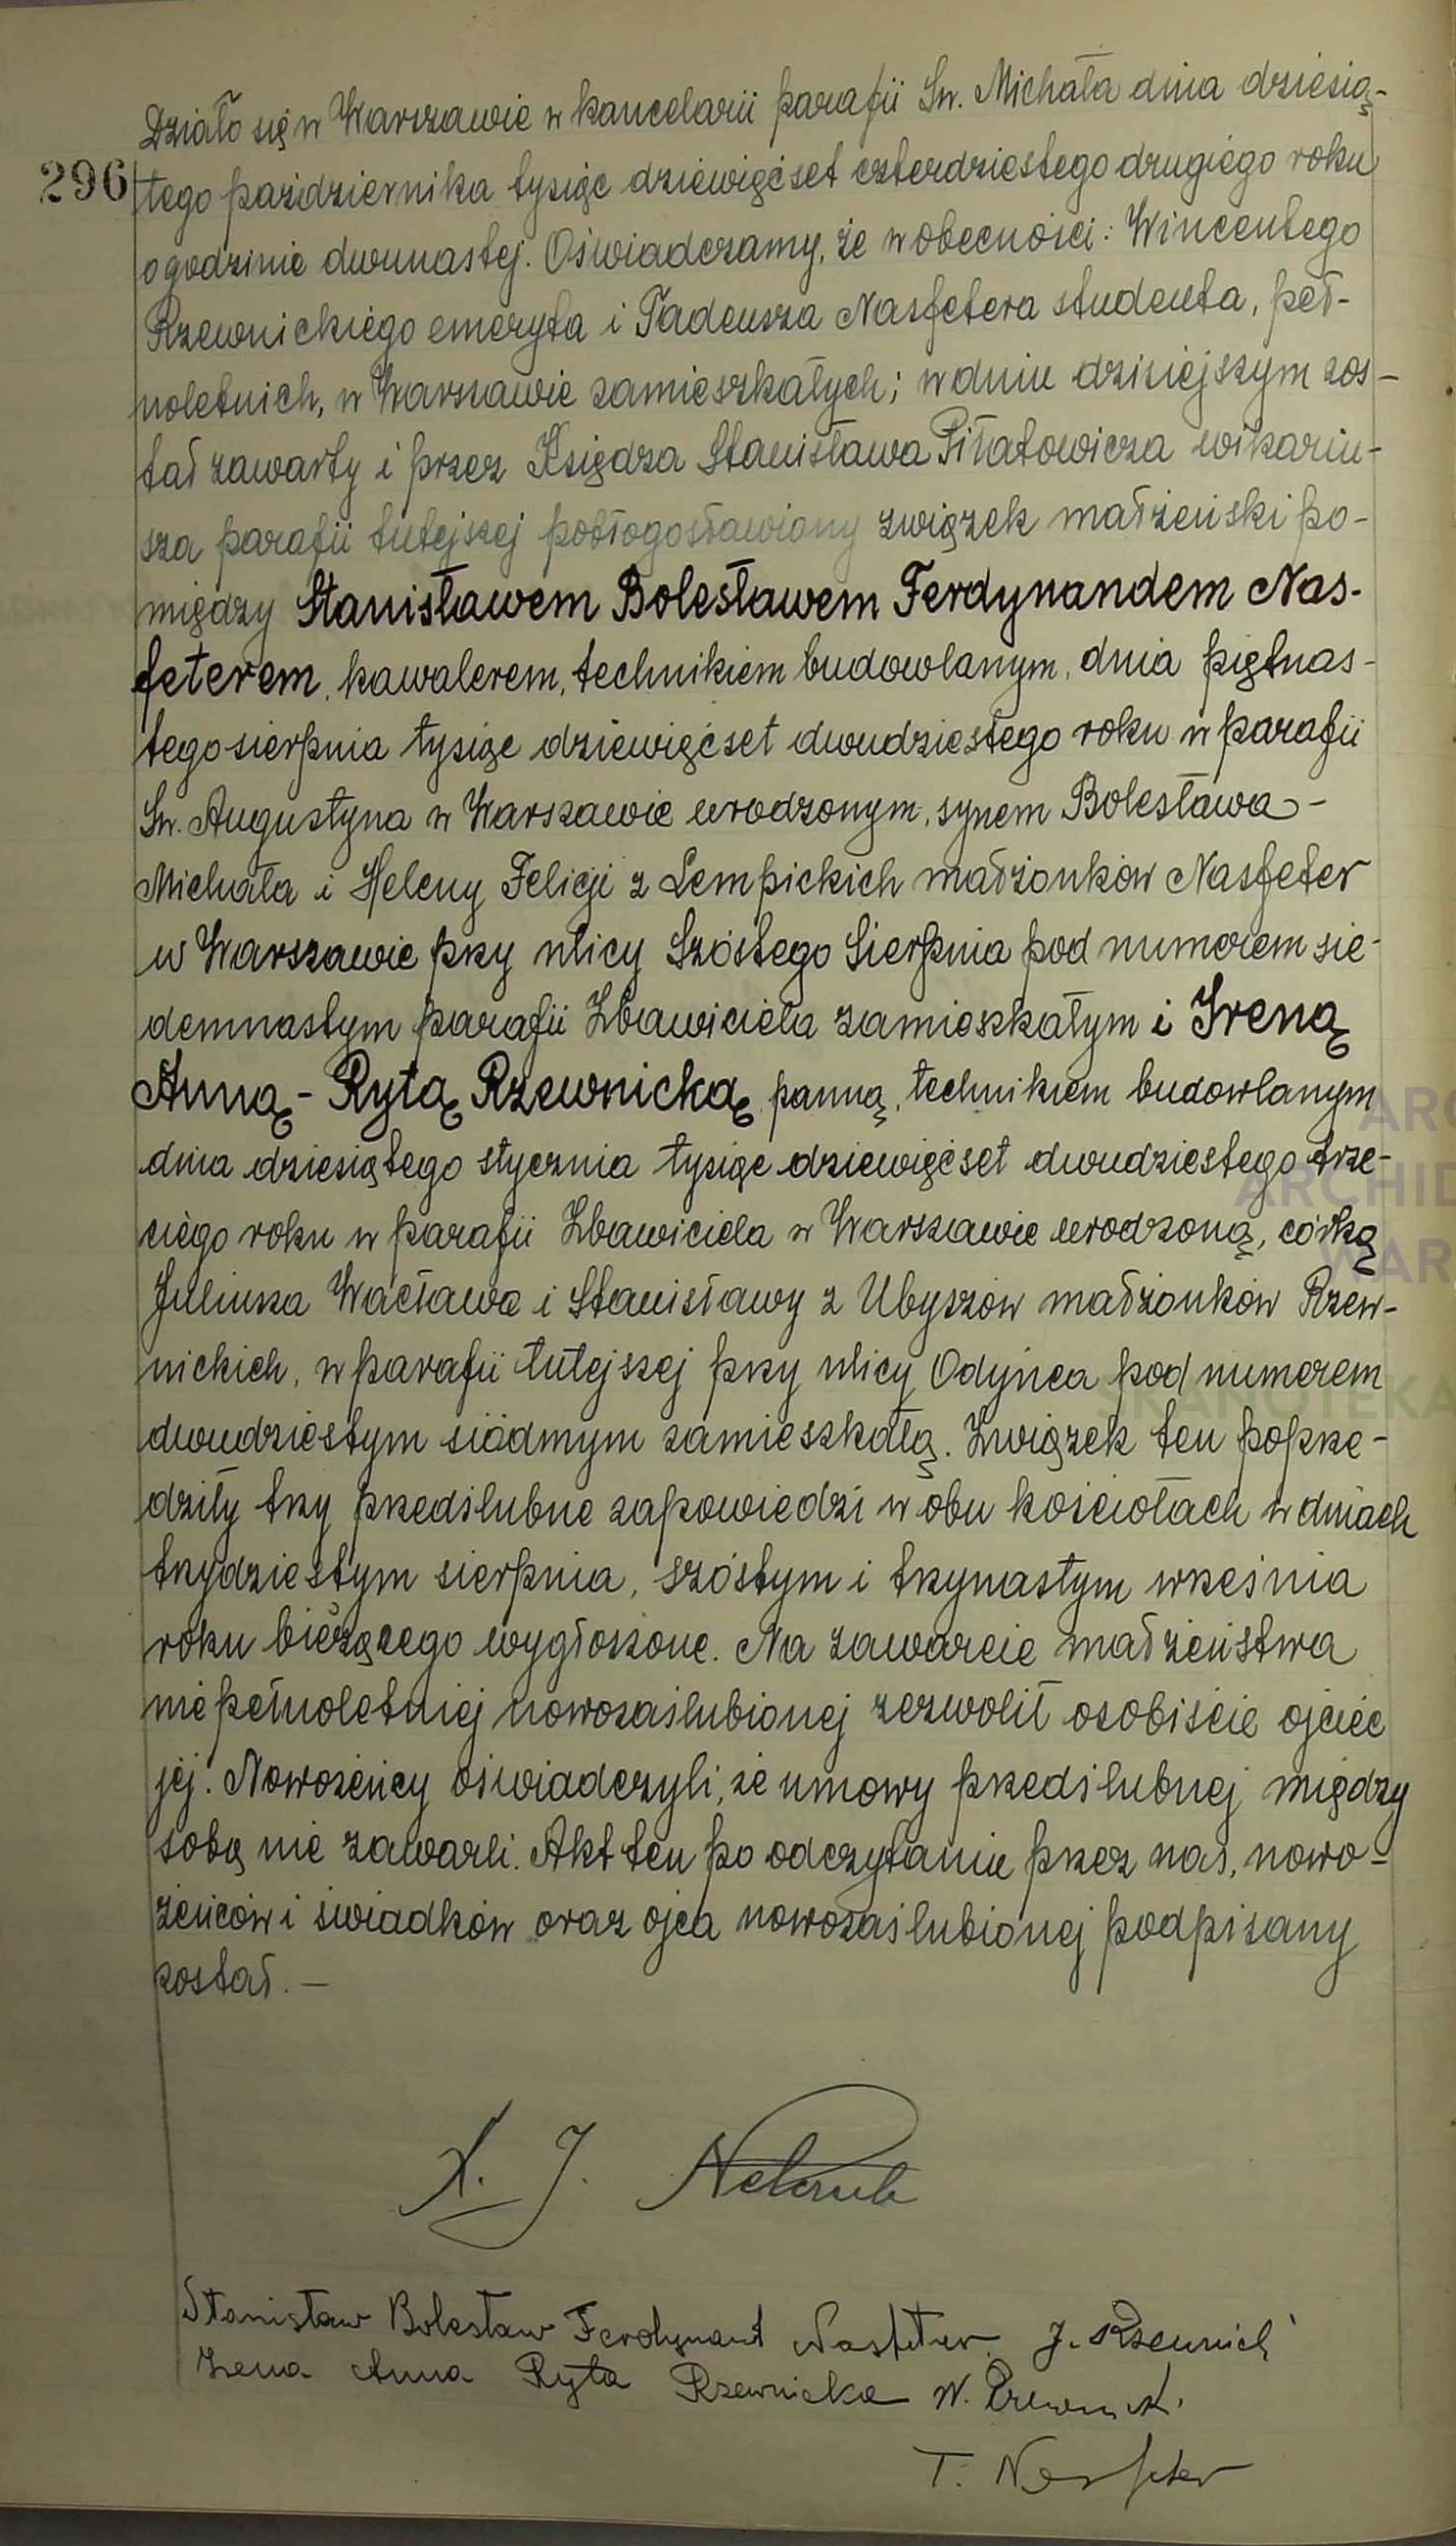 Działo się w Warszawie w kancelarii parafii Św. Michała dnia dziesią-
296
tego października tysiąc dziewięćset czterdziestego drugiego roku
o godzinie dwunastej. Oświadczamy, że w obecności: Wincentego
Rzewnickiego emeryta i Tadeusza Nasfetera studenta, peł-
noletnich, w Warszawie zamieszkałych; w dniu dzisiejszym zos-
tał zawarty i przez Księdza Stanisława Piłatowicza wikariu-
sza parafii tutejszej pobłogosławiony związek małżeński po-
między Stanisławem Bolesławem Ferdynandem Nas-
feterem, kawalerem, technikiem budowlanym, dnia piętnas-
tego sierpnia tysiąc dziewięćset dwudziestego roku w parafii
Św. Augustyna w Warszawie urodzonym, synem Bolesława-
Michała i Heleny Felicji z Lempickich małżonków Nasfeter
w Warszawie przy ulicy Szóstego Sierpnia pod numerem sie-
demnastym parafii Zbawiciela zamieszkałym i Ireną
Anną-Rytą Rzewnicką, panną, technikiem budowlanym
dnia dziesiątego stycznia tysiąc dziewięćset dwudziestego trze-
ciego roku w parafii Zbawiciela w Warszawie urodzoną, córką
Juliusza Wacława i Stanisławy z Ubyszów małżonków Rzew-
nickich, w parafii tutejszej przy ulicy Odyńca pod numerem
dwudziestym siódmym zamieszkałą. Związek ten poprze-
dziły trzy przedślubne zapowiedzi w obu kościołach w dniach
trzydziestym sierpnia, szóstym i trzynastym września
roku bieżącego wygłoszone. Na zawarcie małżeństwa
niepełnoletniej nowozaślubionej zezwolił osobiście ojciec
jej. Nowożeńcy oświadczyli, że umowy przedślubnej między
sobą nie zawarli. Akt ten po odczytaniu przez nas, nowo-
żeńców i świadków oraz ojca nowozaślubionej podpisany
został. —
X. J.
Stanisław Bolesław Ferdynand Nasfeter J. Rzewnicki
Irena Anna Ryta Rzewnicka W. Rzewnicki
T. Nasfeter